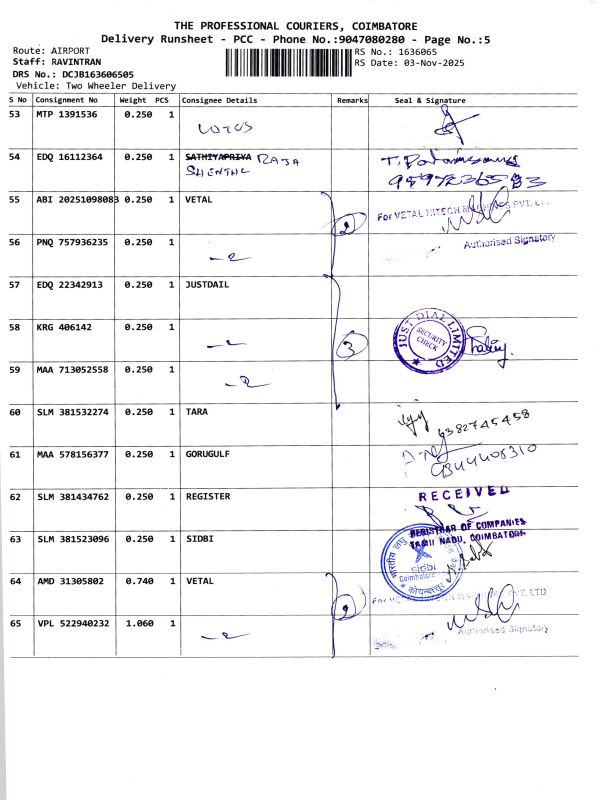 THE PROFESSIONAL COURIERS, COIMBATORE
Delivery Runsheet - PCC - Phone No.:9047080280 - Page No.:5
Route: AIRPORT
Staff: RAVINTRAN
DRS No.: DCJB163606505
Vehicle: Two Wheeler Delivery
RS No.: 1636065
RS Date: 03-Nov-2025
S No Consignment No Weight PCS Consignee Details Remarks Seal & Signature
53 MTP 1391536 0.250 1
LOTUS
54 EDQ 16112364 0.250 1 SATHIYAPRIYA RAJA
SHENTHL
55 ABI 20251098083 0.250 1 VETAL
2
For VETAL HITECH MACHINES PVT. LTD
Authorised Signatory
56 PNQ 757936235 0.250 1
57 EDQ 22342913 0.250 1 JUSTDAIL
58 KRG 406142 0.250 1
3
JUST DIAL LIMITED
SECURITY
CHECK
59 MAA 713052558 0.250 1
60 SLM 381532274 0.250 1 TARA
6382745458
61 MAA 578156377 0.250 1 GORUGULF
9344408310
62 SLM 381434762 0.250 1 REGISTER
RECEIVED
REGISTRAR OF COMPANIES
TAMIL NADU, COIMBATORE
63 SLM 381523096 0.250 1 SIDBI
sidbi
Coimbatore
कोयम्बत्तूर
64 AMD 31305802 0.740 1 VETAL
2
PVT. LTD
Authorised Signatory
65 VPL 522940232 1.060 1